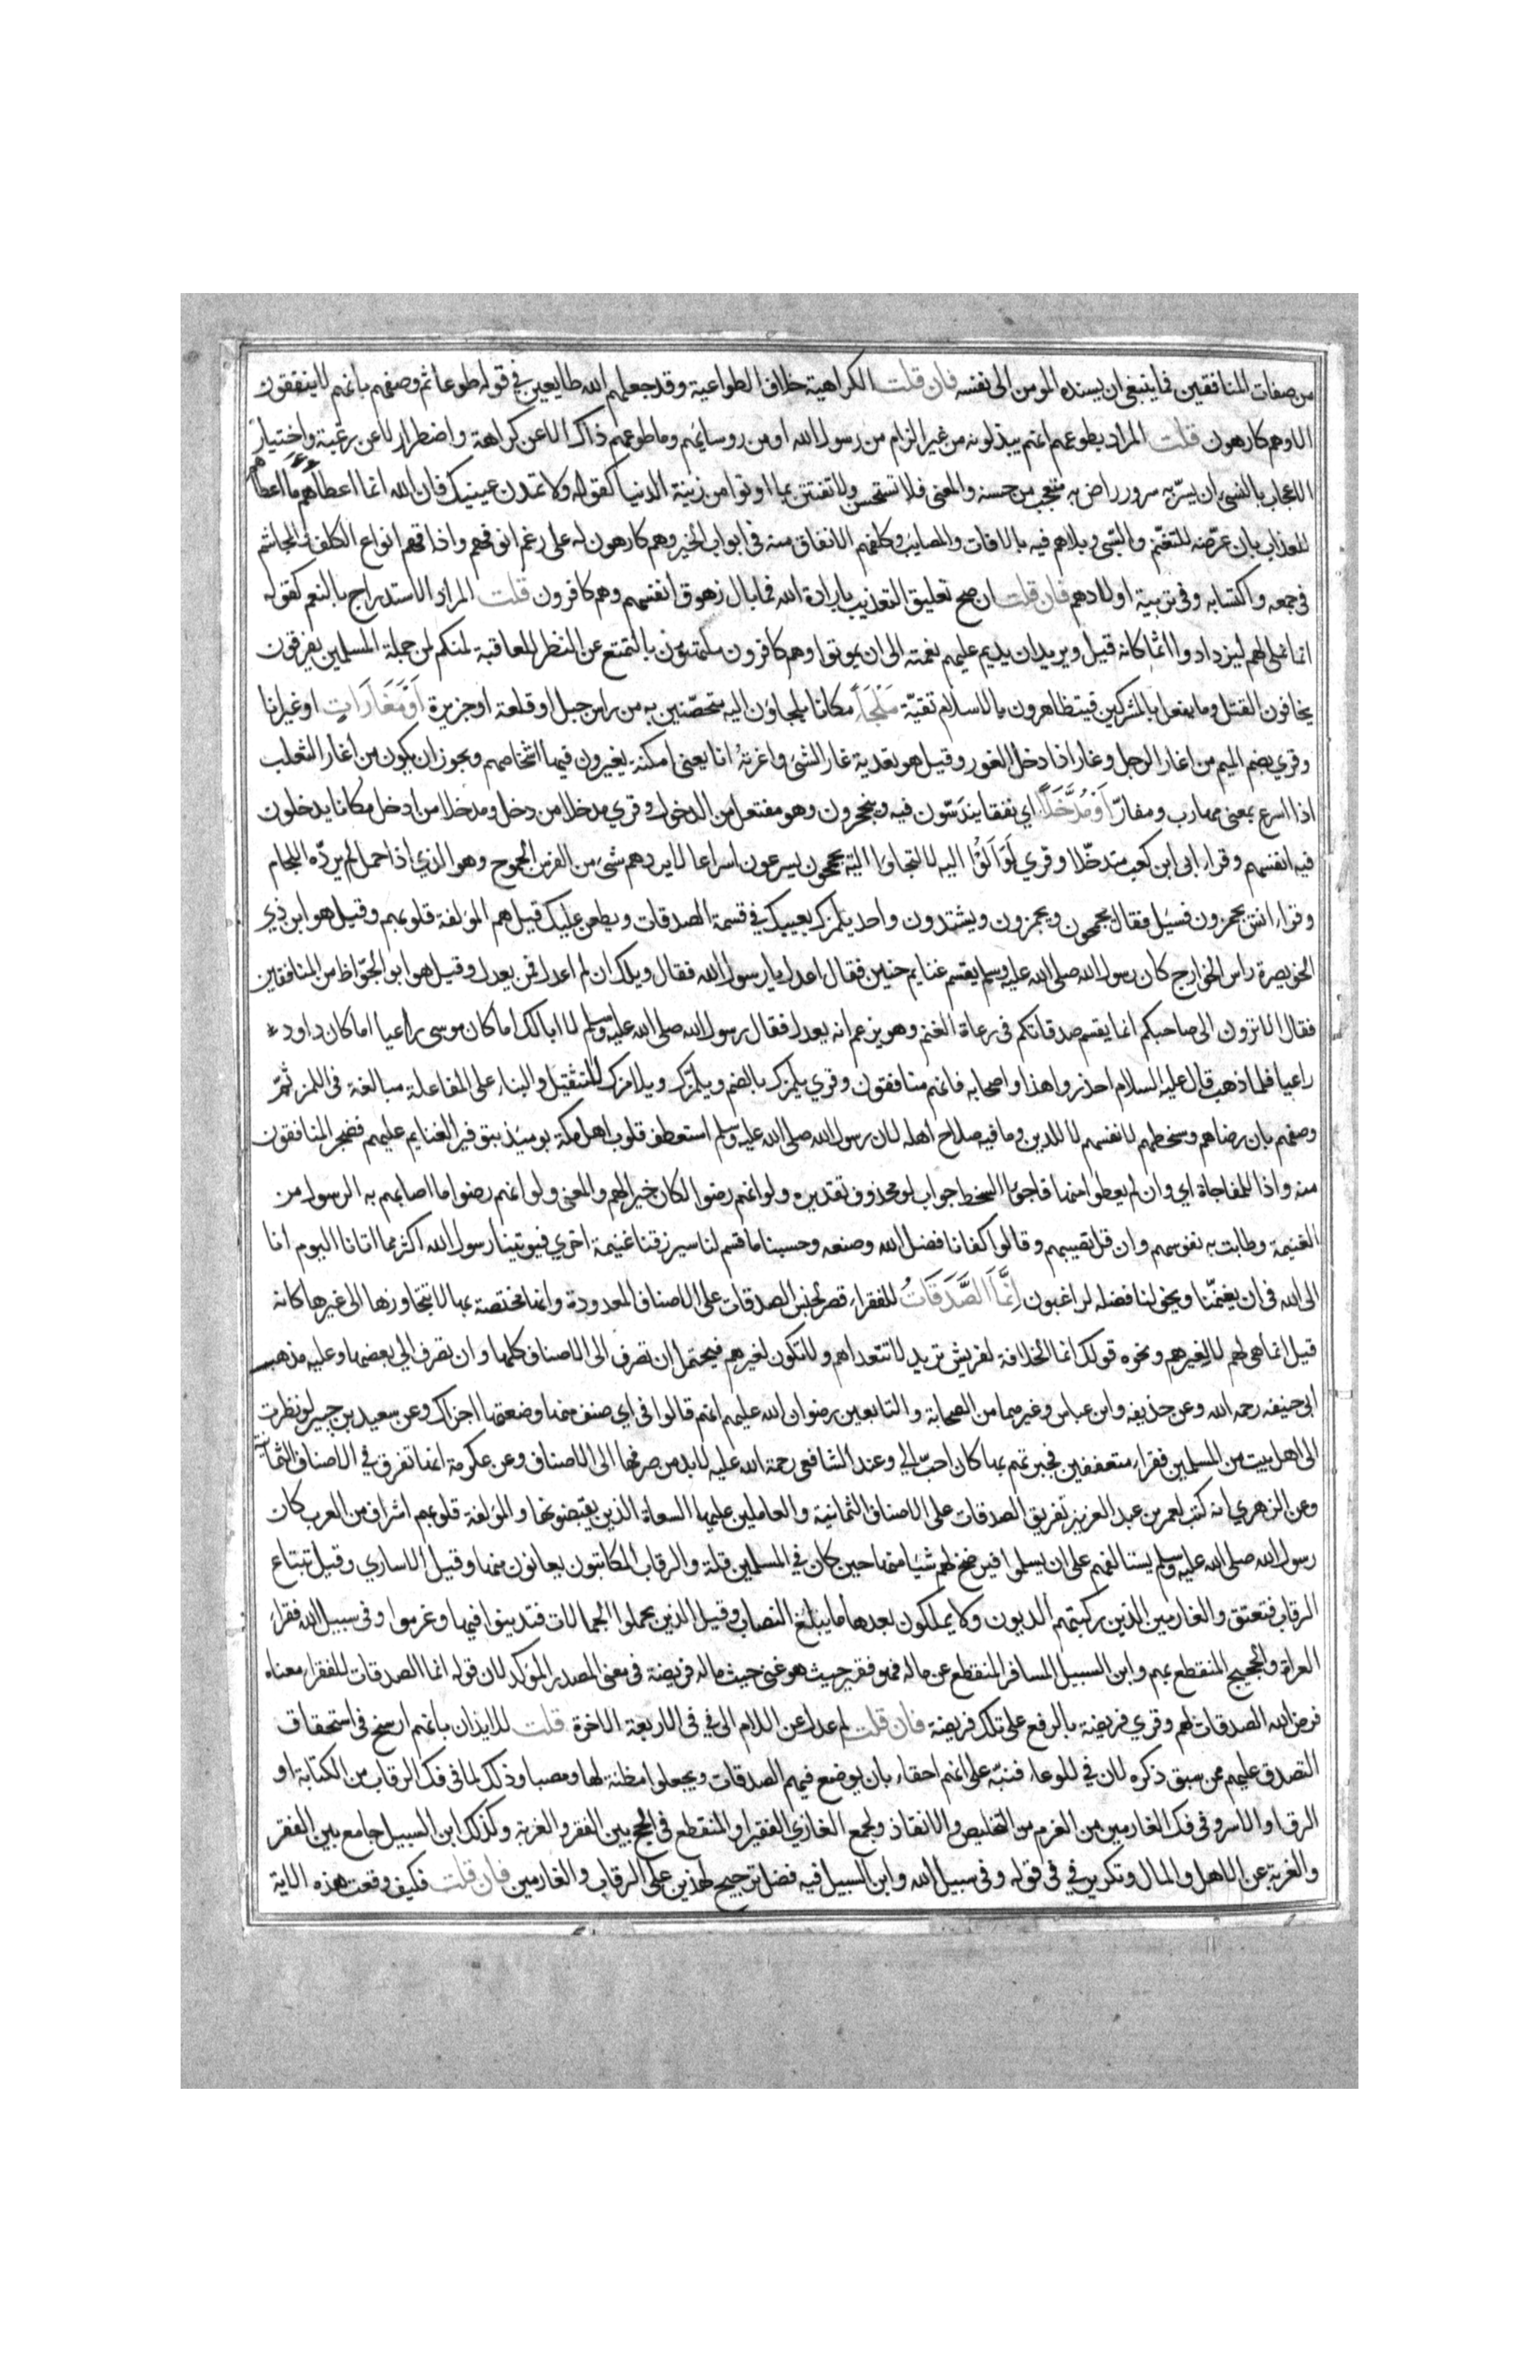 من صفات المنافقين فما ينبغي ان يسنده المومن الى نفسه فان قلت الكراهية خلاف الطواعية وقد جعلهم الله طايعين في قوله طوعا ثم وصفهم بانهم لا ينفقون
الا وهم كارهون قلت المراد بطوعهم انهم يبذلونه من غير الزام من رسول الله او من روسايهم وما طوعهم ذاك الا عن كراهة واضطرار لا عن رغبة واختيار
الاعجاب بالشىء ان يسرّ به سرور راض به متعجب من حسنه والمعنى فلا تستحسن ولا تفتتن بما اوتوا من زينة الدنيا كقوله ولا تمدن عينيك فان الله انما اعطاهم ما اعطاهم
للعذاب بان عرّضه للتغنّم والسّبى وبلاهم فيه بالافات والمصايب وكلفهم الانفاق منه في ابواب الخير وهم كارهون له على رغم انوفهم واذاقهم انواع الكلف والمجاشم
في جمعه واكتسابه وفي تربية اولادهم فان قلت ان صح تعليق التعذيب بارادة الله فما بال زهوق انفسهم وهم كافرون قلت المراد الاستدراج بالنعم كقوله
انما نملى لهم ليزدادوا اثما كانه قيل ويريد ان يديم عليهم نعمته الى ان يموتوا وهم كافرون ملتهون بالتمتع عن النظر للعاقبة لمنكم لمن جملة المسلمين يفرقون
يخافون القتل وما يفعل بالمشركين فيتظاهرون بالاسلام تقيّة مَلْجَأً مكانا يلجاون اليه متحصّنين به من راس جبل او قلعة او جزيرة اَوْ مَغَارَاتٍ او غيرانا
وقري بضم الميم من اغار الرجل وغار اذا دخل الغور وقيل هو تعدية غار الشىء واغرتُه انا يعنى امكنة يغيرون فيها اشخاصهم ويجوز ان يكون من اغار الثعلب
اذا اسرع بمعنى مهارب ومفارّ اَوْ مُدَّخَلًا اي نفقا يندسّون فيه وينجحرون وهو مفتعل من الدخول وقري مدخلا من دخل ومدخلا من ادخل مكانا يدخلون
فيه انفسهم وقراء ابى ابن كعب متدخّلا وقري لَوَ اَلَوْا اليه لالتجاوا اليه يجمحون يسرعون اسراعا لا يردهم شىء من الفرس الجموح وهو الذي اذا حمل لم يردّه اللجام
وقراء انس يجمزون فسيل فقال يجمحون ويجمزون ويشتدون واحد يلمزك يعيبك في قسمة الصدقات ويطعن عليك قيل هم المولفة قلوبهم وقيل هو ابن ذي
الخويصرة راس الخوارج كان رسول الله صلى الله عليه وسلم يقسم غنايم حنين فقال اعدل يا رسول الله فقال ويلك ان لم اعدل فمن يعدل وقيل هو ابو الجوّاظ من المنافقين
فقال الا ترون الى صاحبكم انما يقسم صدقاتكم في رعاة الغنم وهو يزعم انه يعدل فقال رسول الله صلى الله عليه وسلم لا ابا لك اما كان موسى راعيا اما كان داود
راعيا فلما ذهب قال عليه السلام احذروا هذا واصحابه فانهم منافقون وقري يلمزك بالضم ويلمّزك ويلامزك للتثقيل والبناء على المفاعلة مبالغة في اللمز ثمّ
وصفهم بان رضاهم وسخطهم لانفسهم لا للدين وما فيه صلاح اهله لان رسول الله صلى الله عليه وسلم استعطف قلوب اهل مكة يوميذ بتوفير الغنايم عليهم فضجر المنافقون
منه واذا للمفاجاة اي وان لم يعطوا منها فاجوا السخط جواب لو محذوف تقديره ولو انهم رضوا لكان خيرا لهم والمعنى ولو انهم رضوا ما اصابهم به الرسول من
الغنيمة وطابت به نفوسهم وان قل نصيبهم وقالوا كفانا فضل الله وصنعه وحسبنا ما قسم لنا سيرزقنا غنيمة اخري فيوتينا رسول الله اكثر مما اتانا اليوم انا
الى الله في ان يغنمّنا ويخولنا فضله لراغبون اِنَّمَا الصَّدَقَاتُ للفقراء قصر لجنس الصدقات على الاصناف المعدودة وانها مختصة بها لا يتجاوزها الى غيرها كانه
قيل انما هى لهم لا لغيرهم ونحوه قولك انما الخلافة لقريش تريد لا تتعداهم ولا تكون لغيرهم فيحتمل ان تصرف الى الاصناف كلها وان تصرف الي بعضها وعليه مذهب
ابى حنيفه رحمه الله وعن حذيفه وابن عباس وغيرهما من الصحابة والتابعين رضوان الله عليهم انهم قالوا في اي صنف منها وضعتها اجزاك وعن سعيد بن جبير لو نظرت
الى اهل بيت من المسلمين فقراء متعففين فجبرتهم بها كان احبّ الي وعند الشافعى رحمة الله عليه لا بد من صرفها الى الاصناف وعن عكرمة انها تفرق في الاصناف الثمانية
وعن الزهري انه كتب لعمر بن عبد العزيز تفريق الصدقات على الاصناف الثمانية والعاملين عليها السعاة الذين يقبضونها والمولفة قلوبهم اشراف من العرب كان
رسول الله صلى الله عليه وسلم يستالفهم على ان يسلموا فيرضخ لهم شيا منها حين كان في المسلمين قلة والرقاب المكاتبون يعانون منها وقيل الاساري وقيل تبتاع
الرقاب فتعتق والغارمين الذين ركبتهم الديون ولا يملكون بعدها ما يبلغ النصاب وقيل الذين تحملوا الحمالات فتدينوا فيها وغرموا وفي سبيل الله فقراء
الغزاة والحجيج المنقطع بهم وابن السبيل المسافر المنقطع عن ماله فهو فقير حيث هو غنى حيث ماله فريضة في معنى المصدر الموكد لان قوله انما الصدقات للفقراء معناه
فرض الله الصدقات لهم وقري فريضة بالرفع على تلك فريضة فان قلت لم عدل عن اللام الى في في الاربعة الاخرة قلت للايذان بانهم ارسخ في استحقاق
التصدق عليهم ممن سبق ذكره لان في للوعاء فنبّه على انهم احقاء بان يوضع فيهم الصدقات ويجعلوا مظنة لها ومصبا وذلك لما في فك الرقاب من الكتابة او
الرق او الاسر وفي فك الغارمين من الغرم من التخليص والانقاذ ولجمع الغازي الفقير او المنقطع في الحج بين الفقر والغربة وكذلك ابن السبيل جامع بين الفقر
والغربة عن الاهل والمال وتكرير في في قوله وفي سبيل الله وابن السبيل فيه فضل ترجيح لهذين على الرقاب والغارمين فان قلت فكيف وقعت هذه الاية